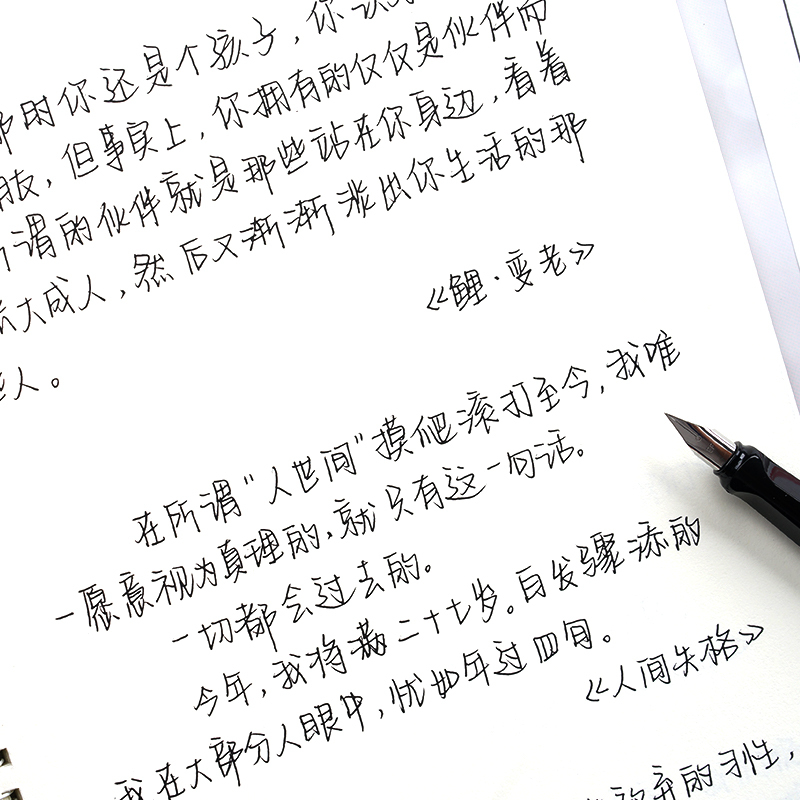 那时你还是个孩子，你
朋友，但事实上，你拥有的仅仅是伙伴而
所谓的伙伴就是那些站在你身边，看着
大成人，然后又渐渐淡出你生活的那
些人。
《鲤·变老》
在所谓"人世间"摸爬滚打至今，我唯
一愿意视为真理的，就只有这一句话。
一切都会过去的。
今年，我将满二十七岁。白发骤添的
我在大部分人眼中，恍如年过四旬。
《人间失格》
弃的习性，